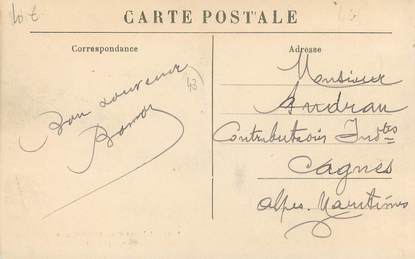 CARTE POSTALE
Correspondance
Adresse
Bon souvenir
Monsieur
Andrau
Contributions Indtes
Cagnes
Alpes-Maritimes